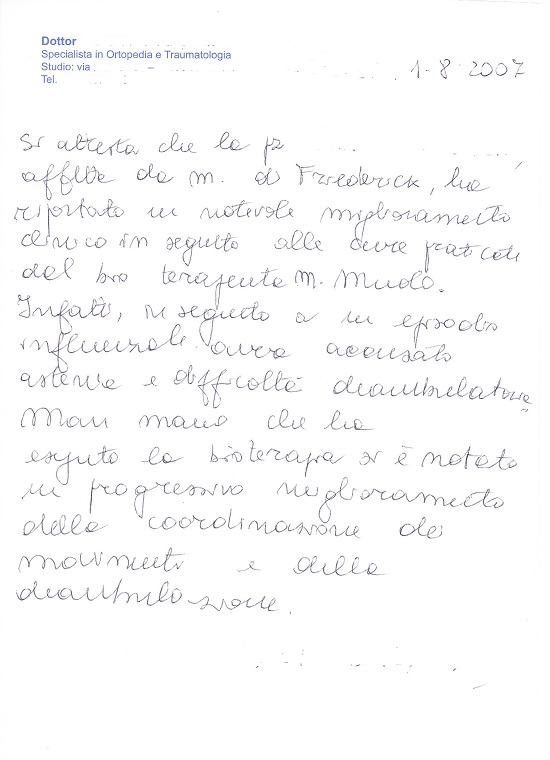 Dottor
Specialista in Ortopedia e Traumatologia
Studio: via
Tel.
1-8-2007
Si attesta che la pz
affetta da m. di Friederick, ha
riportato un notevole miglioramento
clinico in seguito alle cure praticate
dal bio terapeuta M. Mudo.
Infatti, in seguito a un episodio
influenzale aveva accusato
astenia e difficoltà deambulatorie
Man mano che ha
eseguito la bioterapia si è notato
un progressivo miglioramento
della coordinazione dei
movimenti e della
deambulazione.